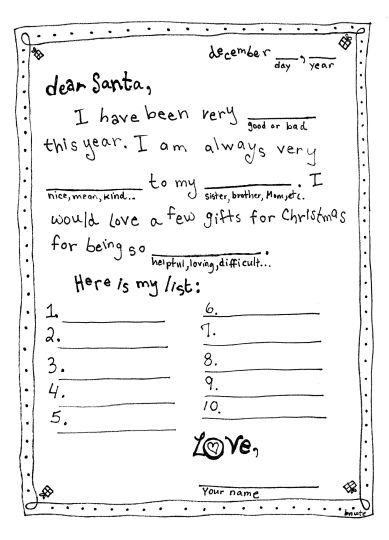 december ___, ___
day year
dear Santa,
I have been very ________
good or bad
this year. I am always very
________ to my ________. I
nice, mean, kind... sister, brother, Mom, etc.
would love a few gifts for Christmas
for being so ________.
helpful, loving, difficult...
Here is my list:
1. ________ 6. ________
2. ________ 7. ________
3. ________ 8. ________
4. ________ 9. ________
5. ________ 10. ________
Love,
________
Your name